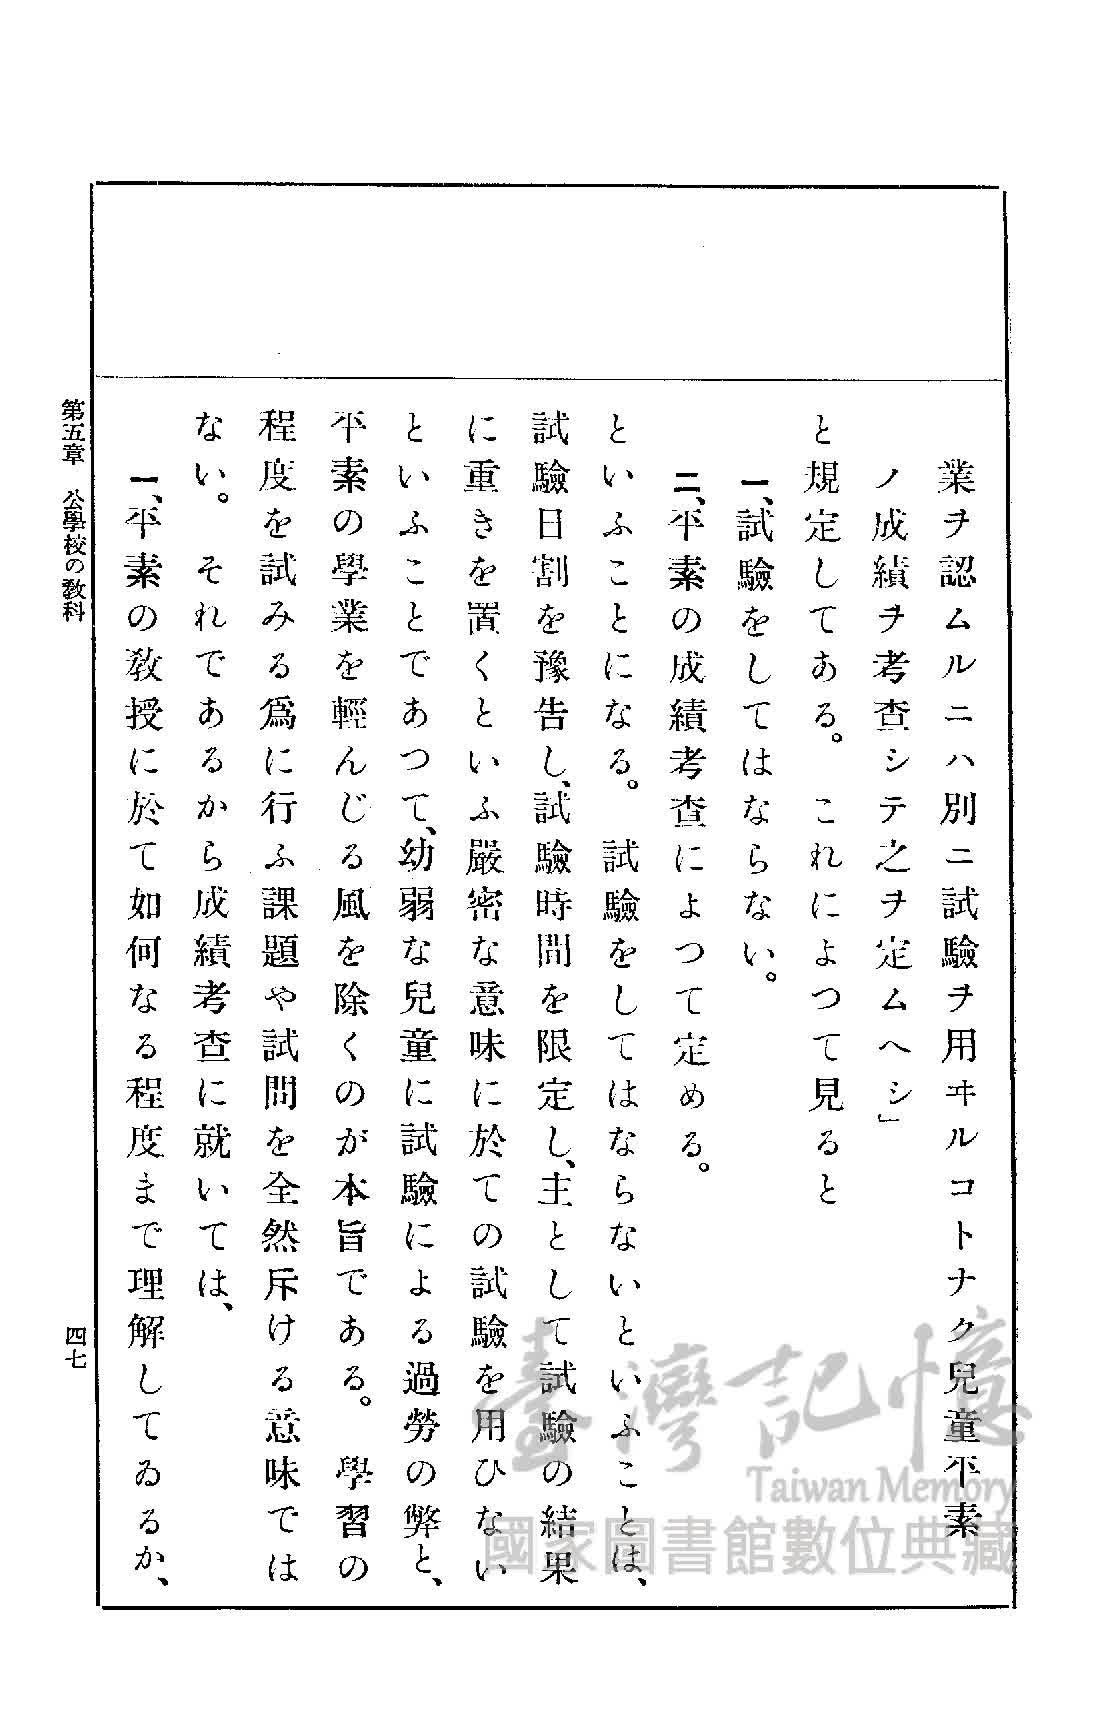 業ヲ認ムルニハ別ニ試驗ヲ用ヰルコトナク兒童平素
ノ成績ヲ考査シテ之ヲ定ムヘシ」
と規定してある。これによつて見ると
一、試驗をしてはならない。
二、平素の成績考査によつて定める。
といふことになる。試驗をしてはならないといふことは、
試驗日割を豫告し、試驗時間を限定し、主として試驗の結果
に重きを置くといふ嚴密な意味に於ての試驗を用ひない
といふことであつて、幼弱な兒童に試驗による過勞の弊と、
平素の學業を輕んじる風を除くのが本旨である。學習の
程度を試みる爲に行ふ課題や試問を全然斥ける意味では
ない。それであるから成績考査に就いては、
一、平素の敎授に於て如何なる程度まで理解してゐるか、
第五章 公學校の敎科
四七
臺灣記憶
Taiwan Memory
國家圖書館數位典藏